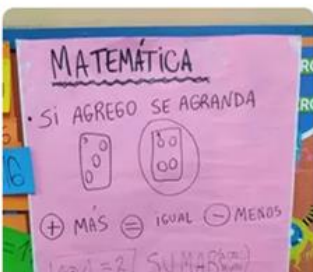 MATEMÁTICA
• Si AGREGO SE AGRANDA
+ MÁS = iGUAL - MENOS
SUMAR
6